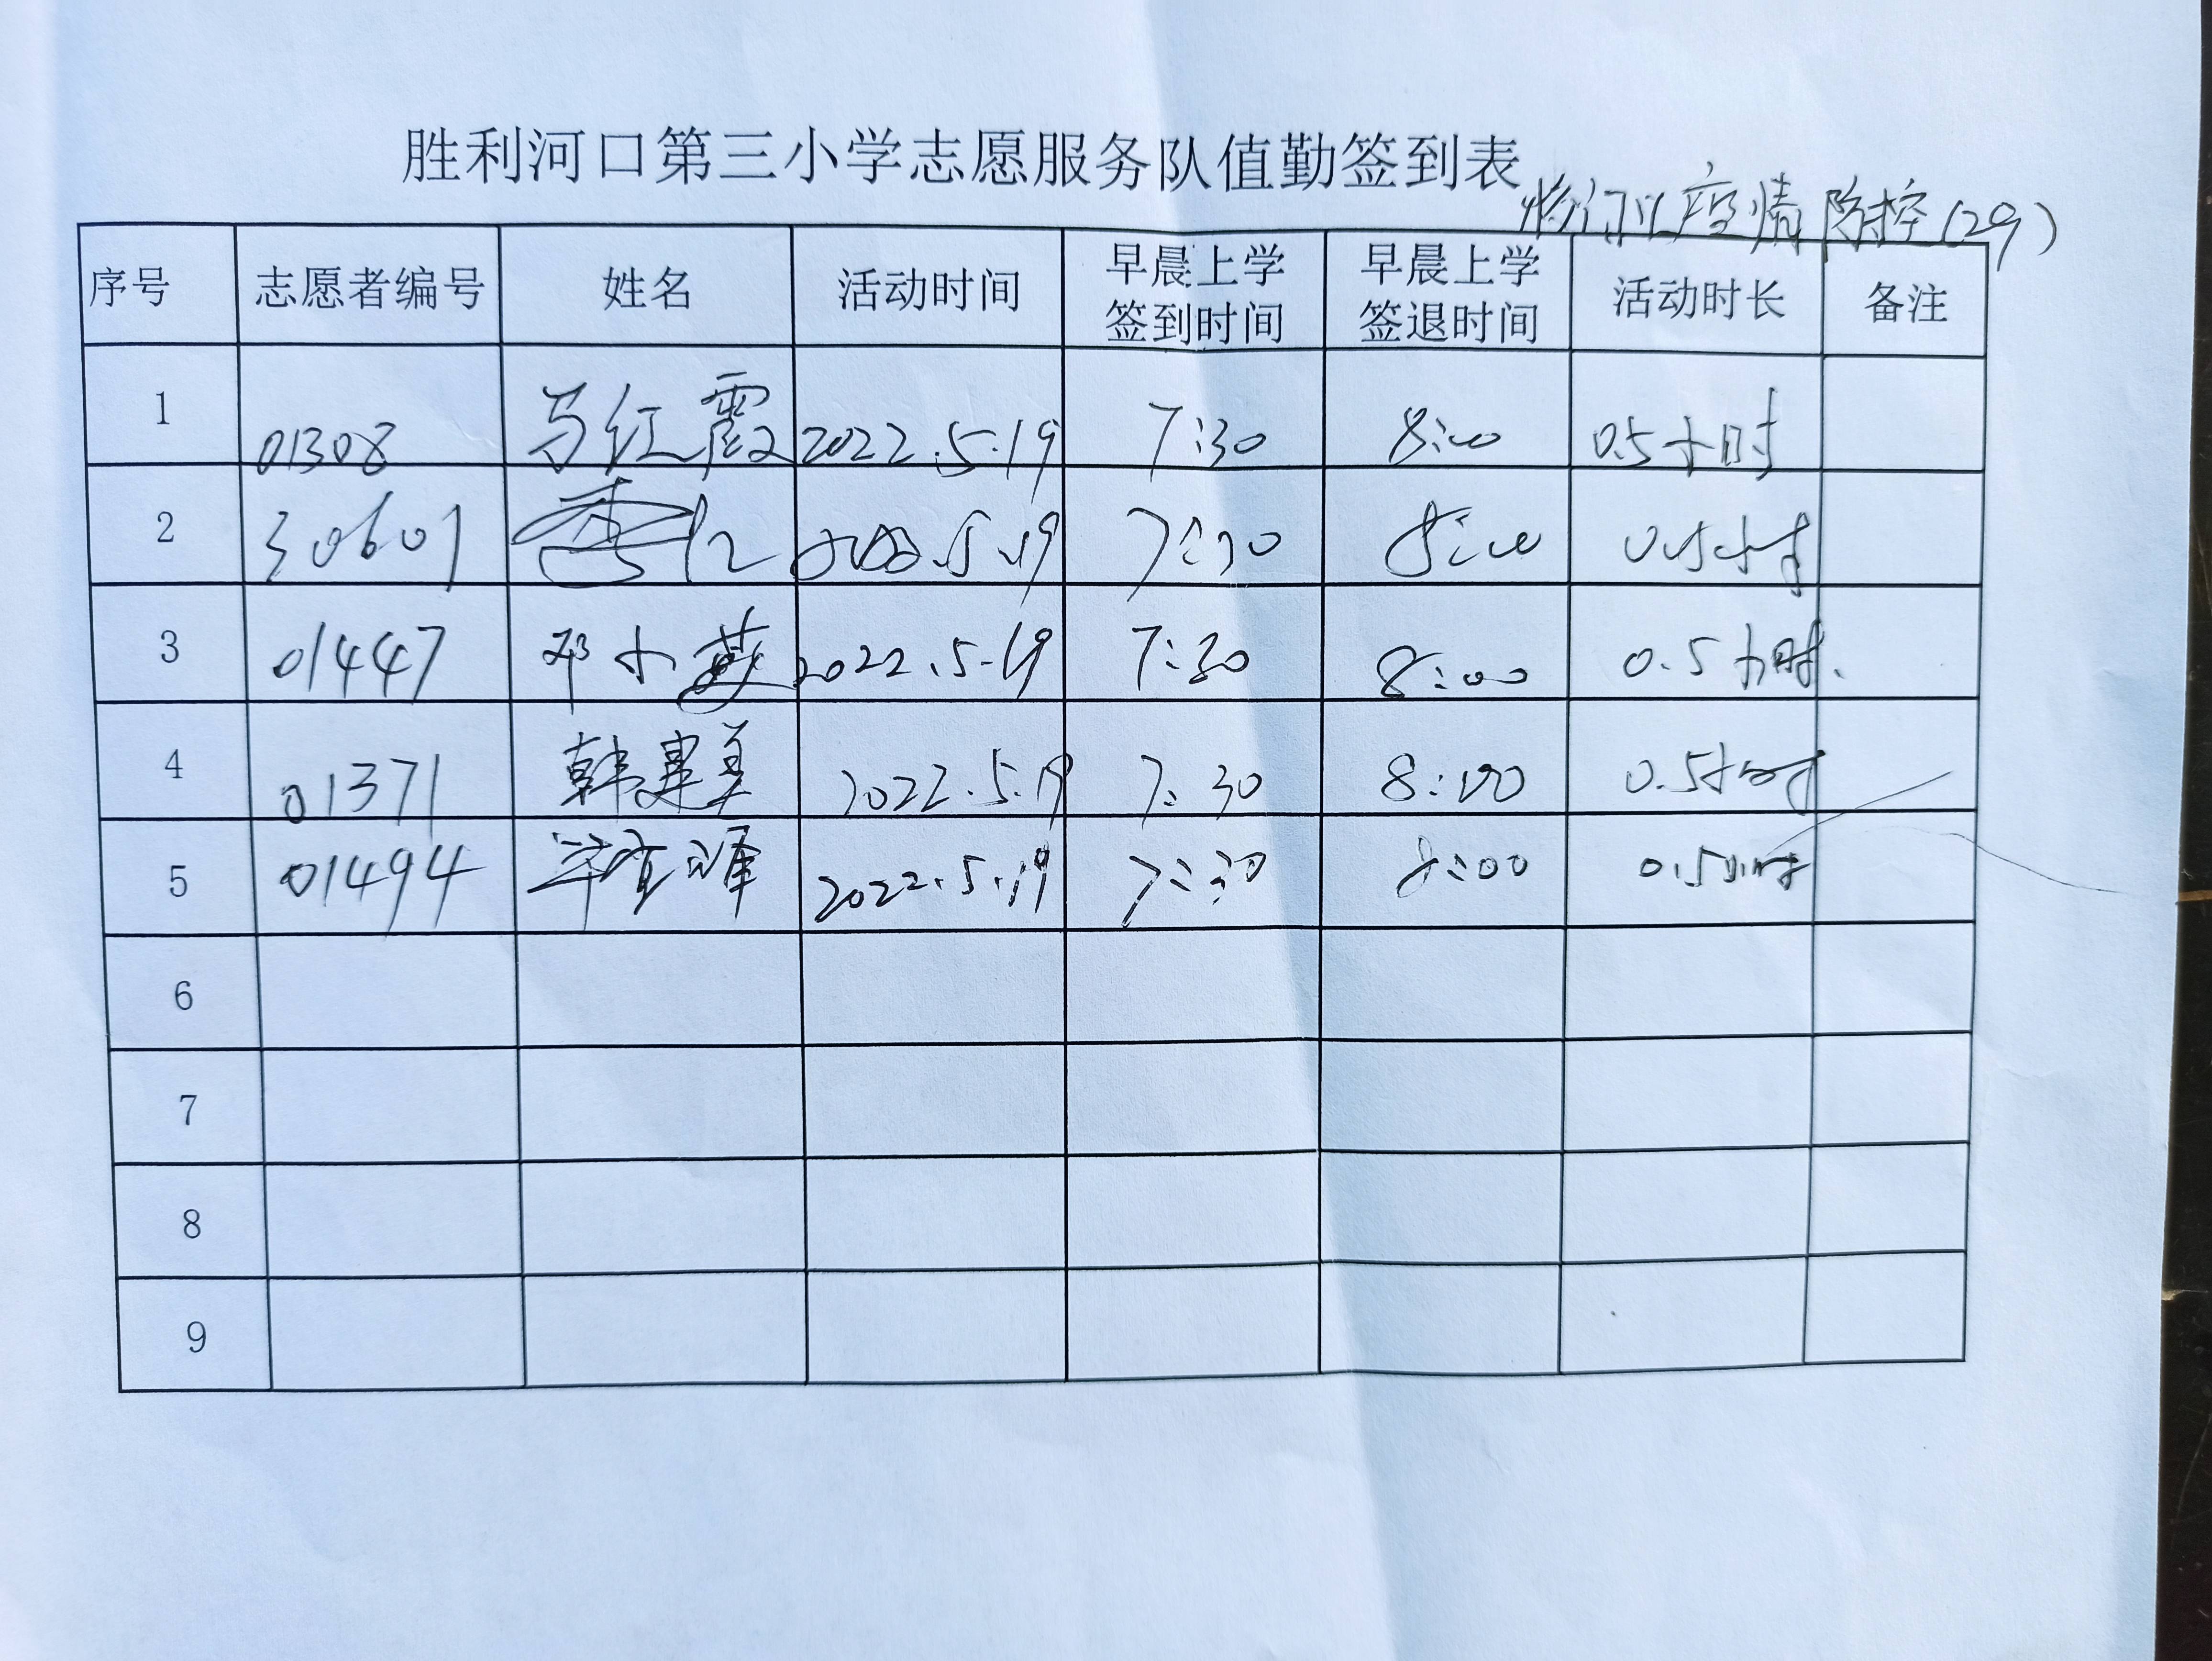 胜利河口第三小学志愿服务队值勤签到表
疫情防控(29)
序号 志愿者编号 姓名 活动时间 早晨上学签到时间 早晨上学签退时间 活动时长 备注
1 01308 马红霞 2022.5.19 7:30 8:00 0.5小时
2 30601 2022.5.19 7:30 8:00 0.5小时
3 01447 邓小燕 2022.5.19 7:30 8:00 0.5小时.
4 01371 韩建美 2022.5.19 7:30 8:00 0.5小时
5 01494 2022.5.19 7:30 8:00 0.5小时
6
7
8
9